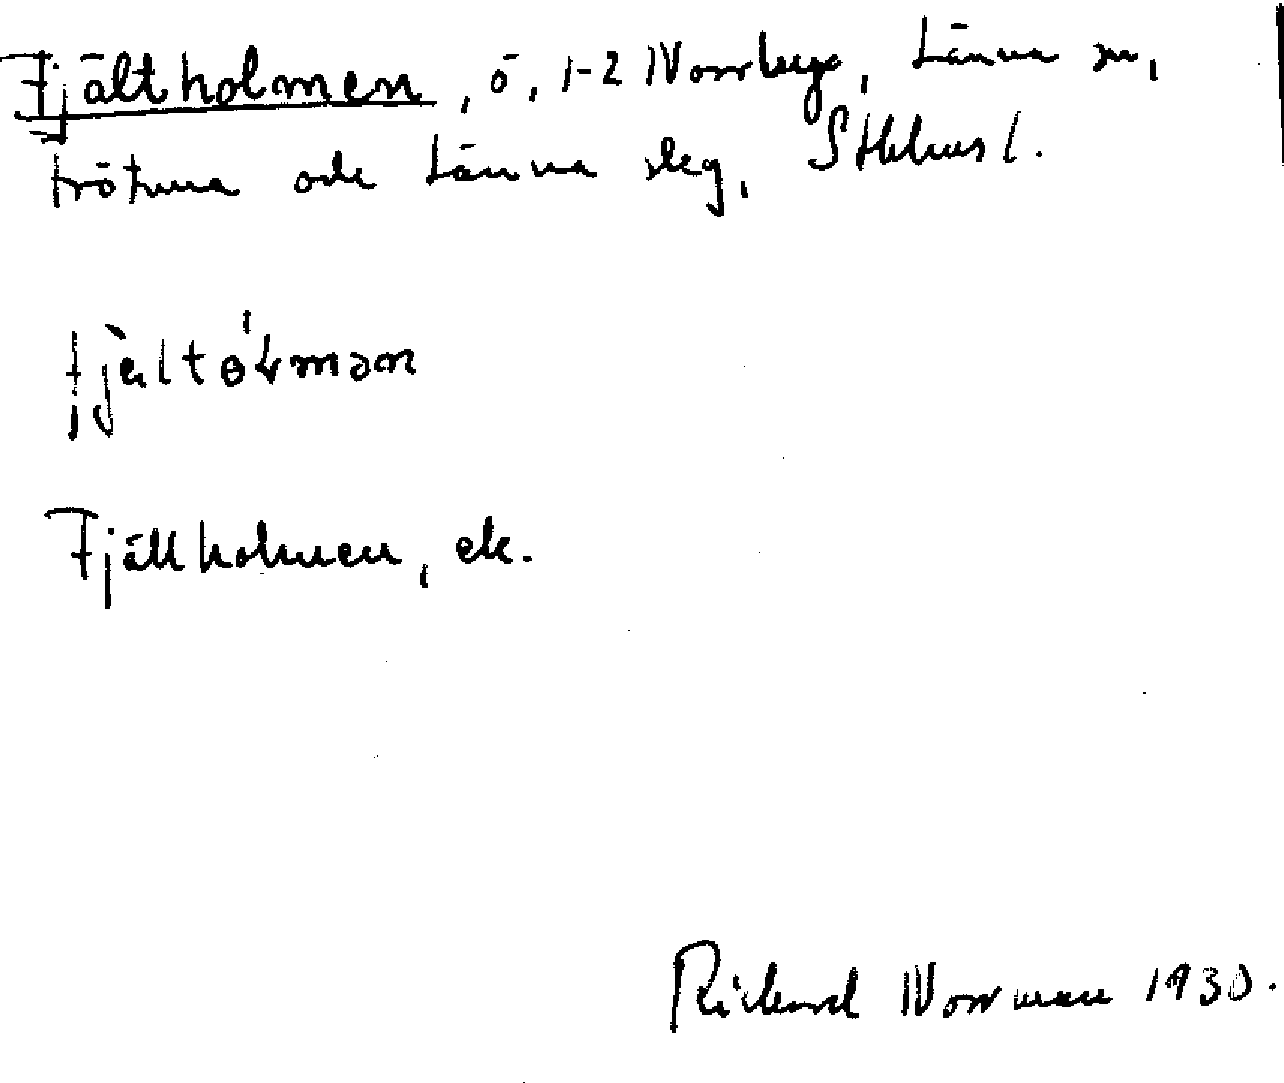 Fjältholmen, ö, 1-2 Norrberga, Länna sn,
Frötuna och Länna slg, Sthlms l.
fjeltɵɫmɔn
Fjällholmen, ek.
Rickard Norrman 1930.